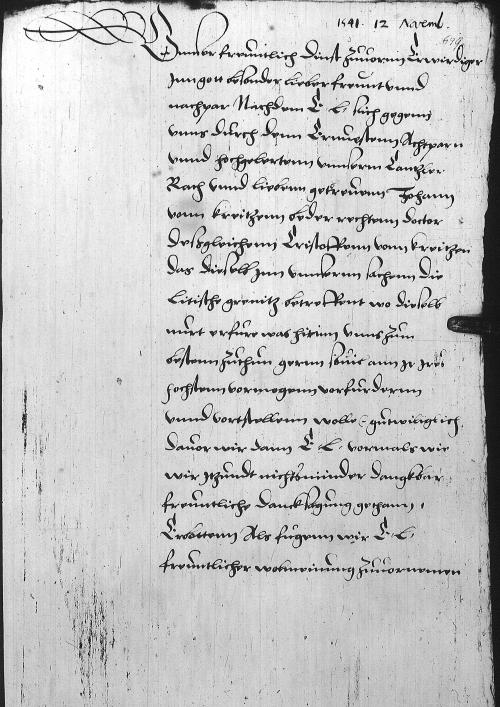 1541. 12 Novemb.
Unnser freuntlich dinst zuuornn Erwirdiger
Jnn gott besonder lieber freunt vnnd
nachpar Nachdem E. L. sich gegenn
vnns durch denn Ernuestenn Achtparn
vnnd hochgelortenn vnnsern Cantzler
Rath vnnd liebenn getreuenn Johann
vonn kreitzenn beder rechtenn doctor
desgleichenn Cristoffenn vonn kreitzen
das dieselb Jnn vnnsernn sachenn die
litische grenitz betreffent wo dieselb
nurt erfure was hirinn vnns zum
bestenn zuthun gernn souil ann Jr Jres
hochstenn vermogenn vorfurdernn
vnnd vortstellenn wolle, gutwilliglich
dauor wir dann E. L. vormals wie
wir Jtzundt nichts minder dangkbar
freuntliche dancksagung gethann,
Erbottenn Als fugenn wir E. L.
freuntlicher wolmeinung zuuornemen